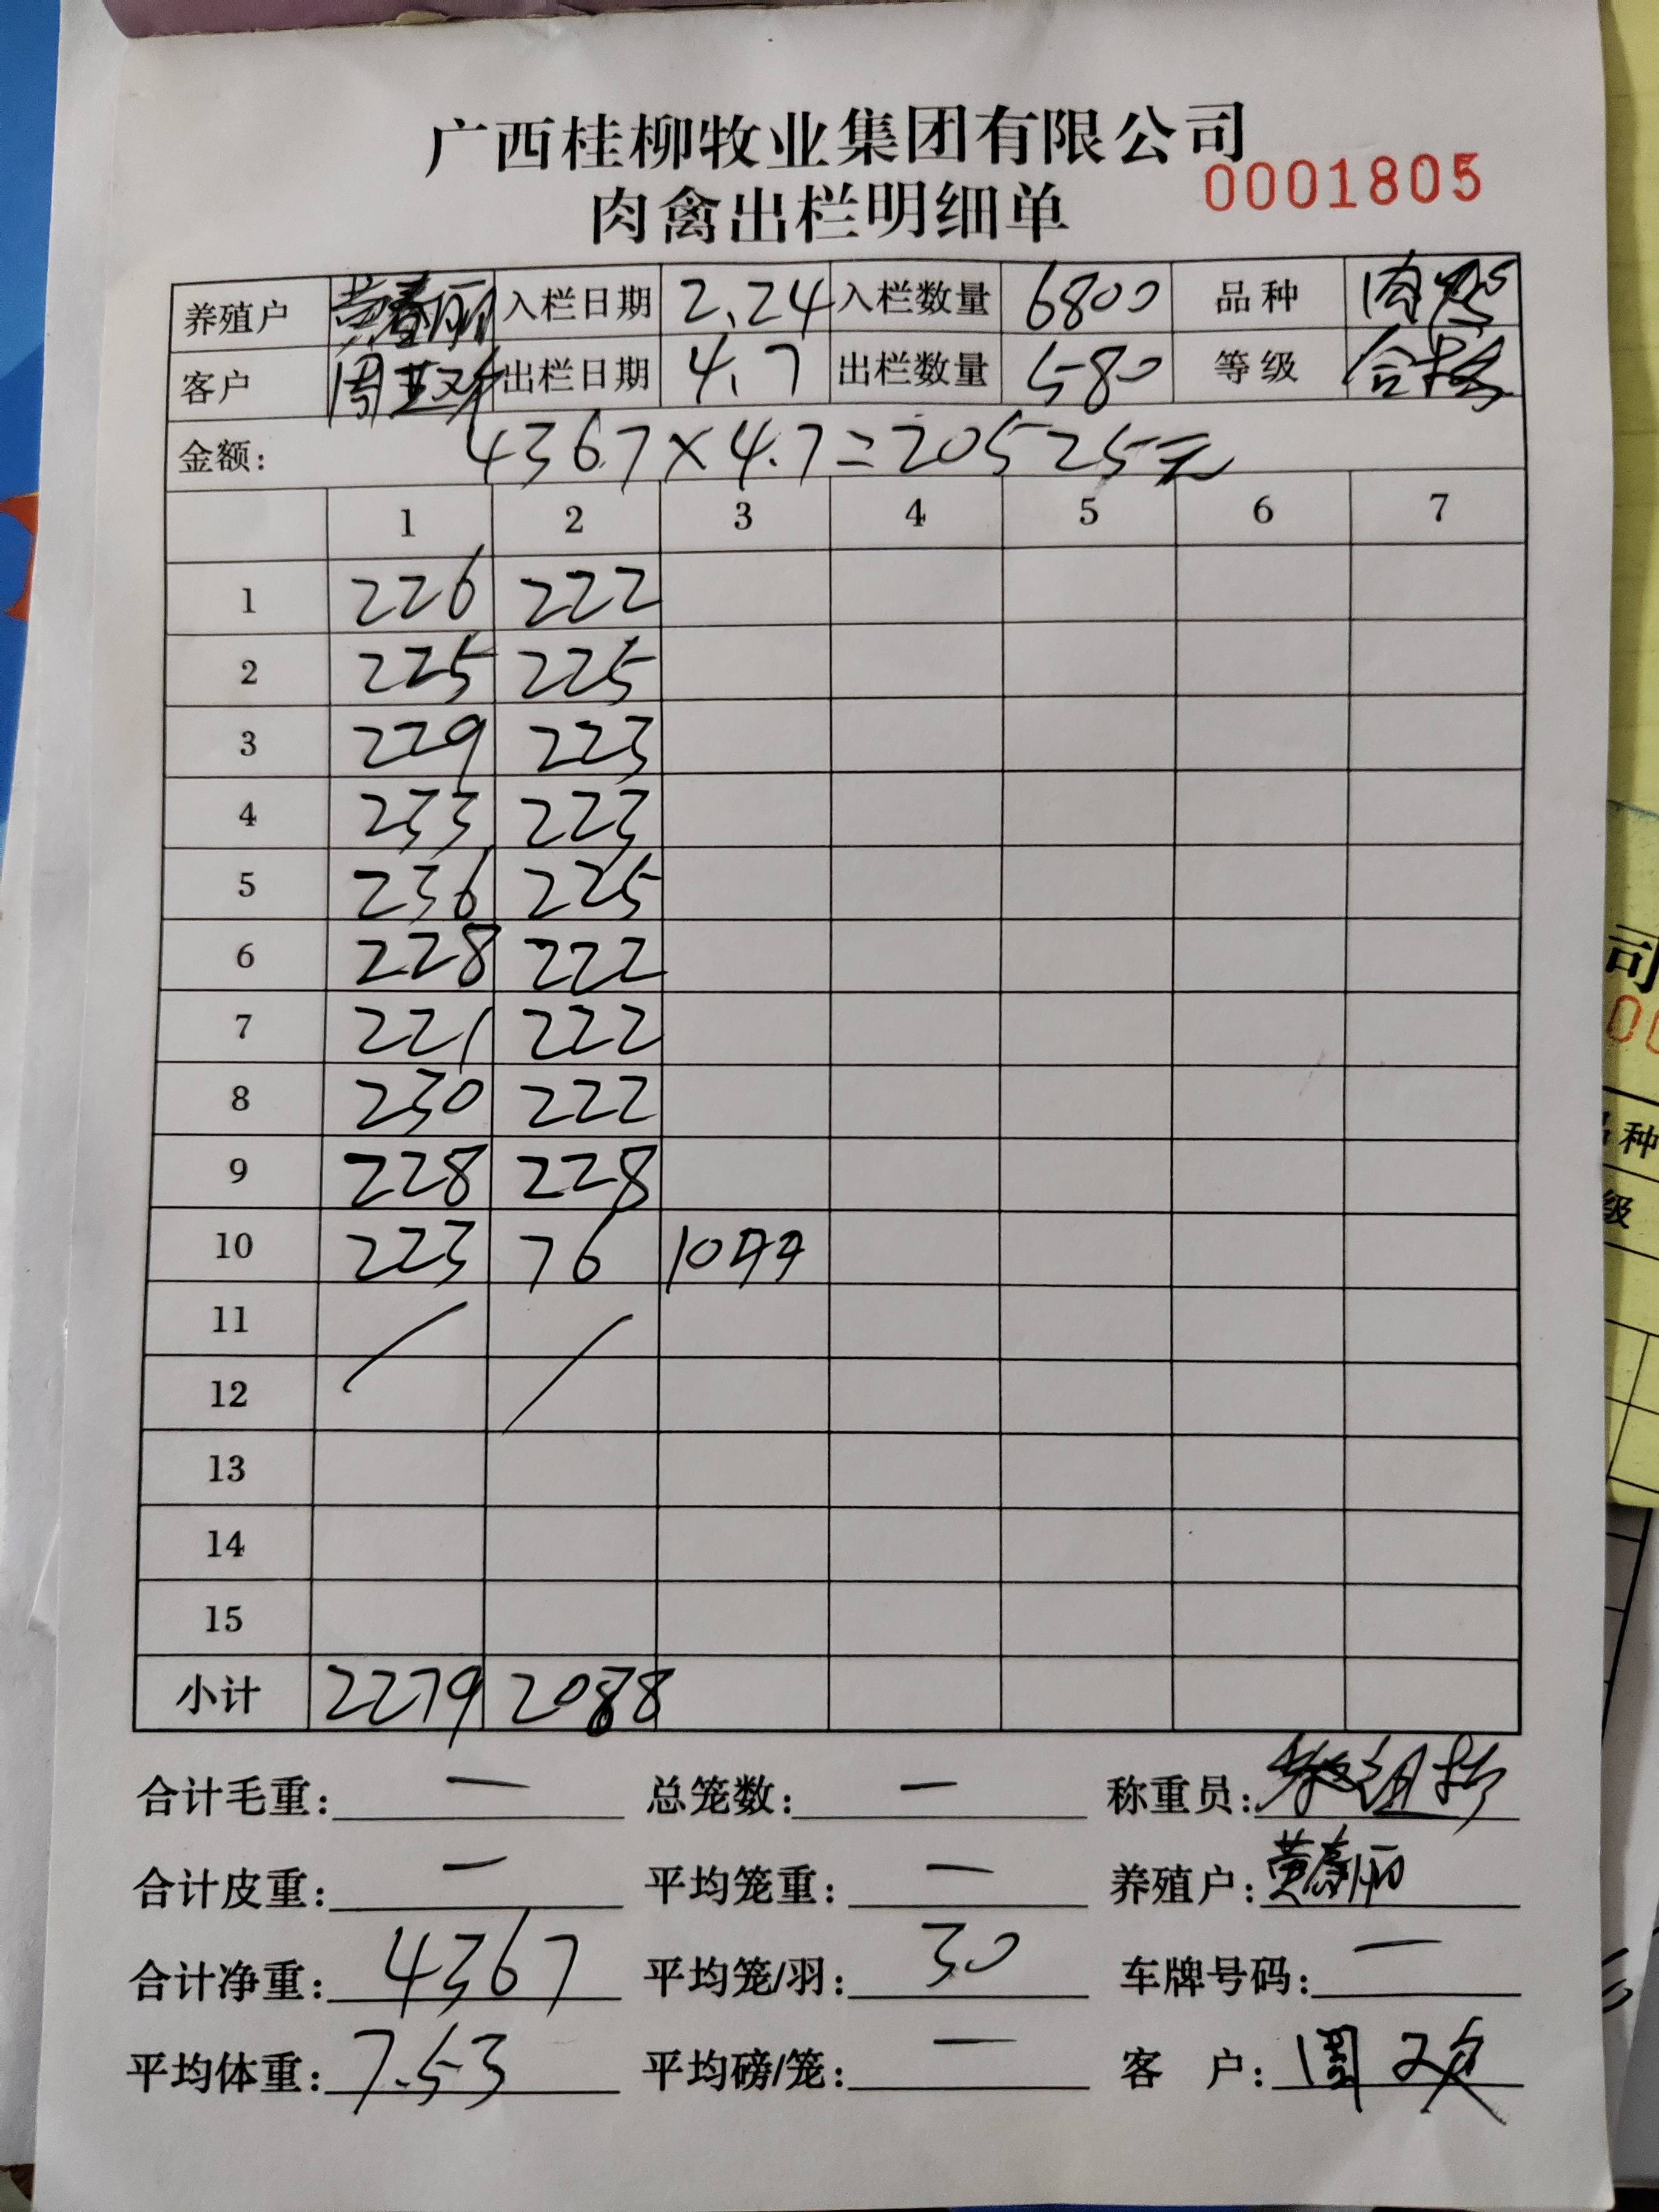 广西桂柳牧业集团有限公司
0001805
肉禽出栏明细单
养殖户 黄春丽 入栏日期 2.24 入栏数量 6800 品种 肉鸡
客户 周 出栏日期 4.7 出栏数量 580 等级 合格
金额: 4367×4.7=20525元
1 2 3 4 5 6 7
1 226 222
2 225 225
3 229 223
4 233 223
5 236 225
6 228 222
7 221 222
8 230 222
9 228 228
10 223 76
11
12
13
14
15
小计 2279 2088
合计毛重: — 总笼数: — 称重员:
合计皮重: — 平均笼重: — 养殖户: 黄春丽
合计净重: 4367 平均笼/羽: 30 车牌号码: —
平均体重: 7.53 平均磅/笼: — 客 户: 周
司
00
品种
级